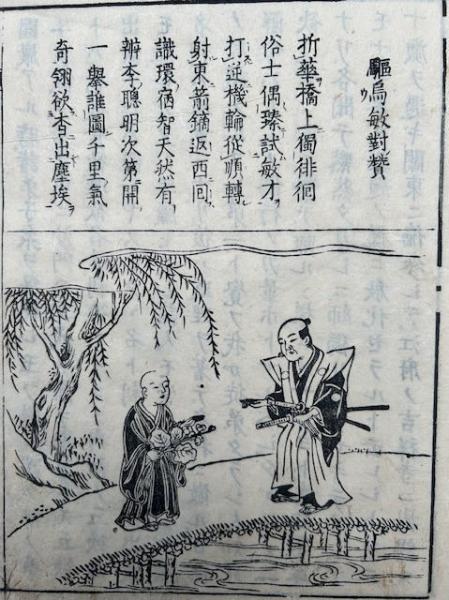 驅烏敏對贊
折華橋上獨徘徊
俗士偶臻試敏才
打逆機輪從順轉
射東箭鏑返西回
識環宿智天然有
辨李聰明次第開
一擧誰圖千里氣
奇翎欲杳出塵埃